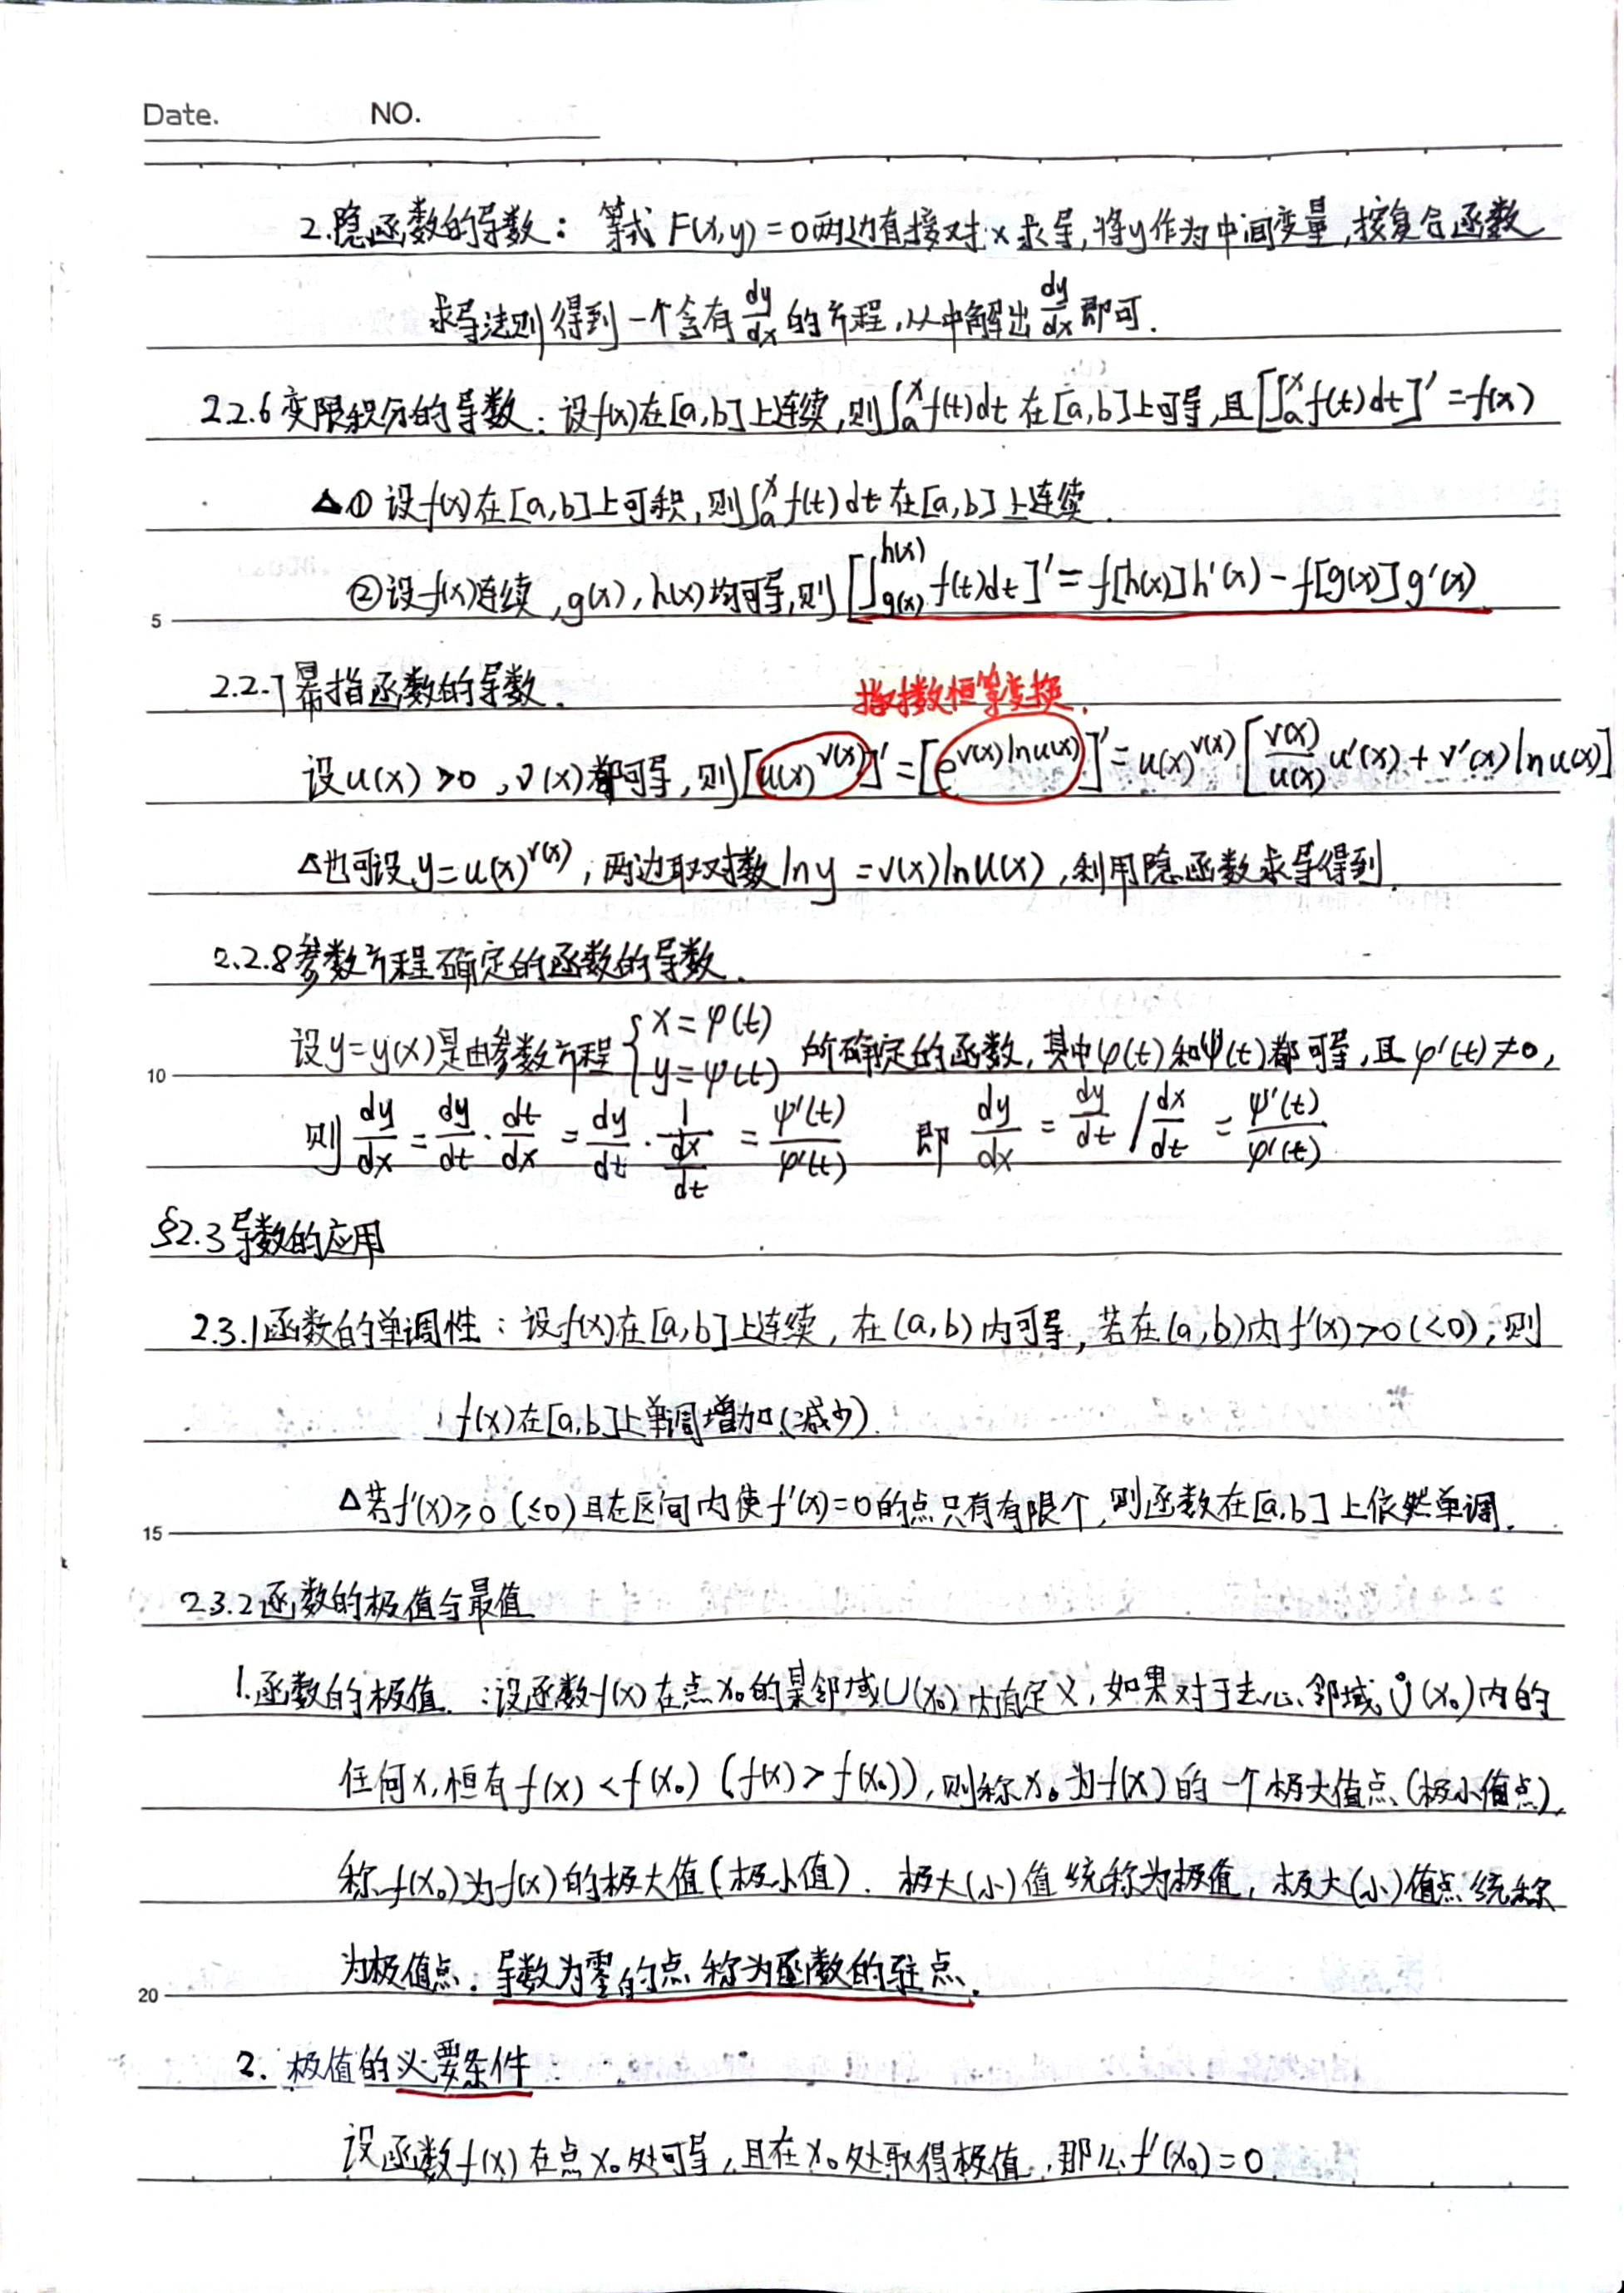 Date. NO.
2.隐函数的导数：等式 F(x,y)=0两边直接对x求导,将y作为中间变量,按复合函数
求导法则得到一个含有dy/dx的方程,从中解出dy/dx即可.
2.2.6变限积分的导数:设f(x)在[a,b]上连续,则∫ₐˣf(t)dt在[a,b]上可导,且[∫ₐˣf(t)dt]'=f(x)
△①设f(x)在[a,b]上可积,则∫ₐˣf(t)dt在[a,b]上连续.
②设f(x)连续,g(x),h(x)均可导,则[∫_{g(x)}^{h(x)}f(t)dt]'=f[h(x)]h'(x)-f[g(x)]g'(x)
5
2.2.7幂指函数的导数.
指对数恒等变换.
设u(x)>0,v(x)都可导,则[u(x)^{v(x)}]'=[e^{v(x)lnu(x)}]'=u(x)^{v(x)}[v(x)/u(x) u'(x)+v'(x)lnu(x)]
△也可设y=u(x)^{v(x)},两边取对数lny=v(x)lnu(x),利用隐函数求导得到.
2.2.8参数方程确定的函数的导数.
设y=y(x)是由参数方程{x=φ(t) y=ψ(t) 所确定的函数,其中φ(t)和ψ(t)都可导,且φ'(t)≠0,
10
则dy/dx=dy/dt·dt/dx=dy/dt·1/(dx/dt)=ψ'(t)/φ'(t) 即 dy/dx=dy/dt/dx/dt=ψ'(t)/φ'(t)
§2.3导数的应用
2.3.1函数的单调性:设f(x)在[a,b]上连续,在(a,b)内可导,若在(a,b)内f'(x)>0(<0),则
f(x)在[a,b]上单调增加(减少).
△若f'(x)≥0(≤0)且在区间内使f'(x)=0的点只有有限个,则函数在[a,b]上依然单调.
15
2.3.2函数的极值与最值
1.函数的极值.:设函数f(x)在点x₀的某邻域U(x₀)内有定义,如果对于去心邻域Ů(x₀)内的
任何x,恒有f(x)<f(x₀)(f(x)>f(x₀)),则称x₀为f(x)的一个极大值点(极小值点),
称f(x₀)为f(x)的极大值(极小值).极大(小)值统称为极值,极大(小)值点统称
为极值点.导数为零的点称为函数的驻点.
20
2.极值的必要条件:
设函数f(x)在点x₀处可导,且在x₀处取得极值,那么f'(x₀)=0